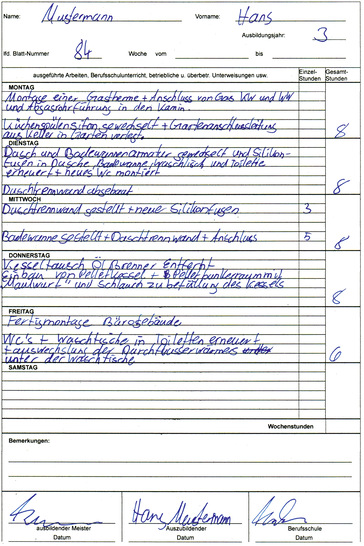 Name: Mustermann Vorname: Hans
Ausbildungsjahr: 3
lfd. Blatt-Nummer 84 Woche vom bis
ausgeführte Arbeiten, Berufsschulunterricht, betriebliche u. überbetr. Unterweisungen usw. Einzel-Stunden Gesamt-Stunden
MONTAG
Montage einer Gastherme + Anschluss von Gas KW und WW
und Abgasrohrführung in den Kamin.
Küchenspülensifon gewechselt + Gartenanschlussleitung
aus Keller in Garten verlegt 8
DIENSTAG
Dusch und Badewannenarmatur gewechselt und Silikon-
fugen in Dusche, Badewanne, Waschtisch und Toilette
erneuert + neues Wc montiert
Duschtrennwand abgebaut 8
MITTWOCH
Duschtrennwand gestellt + neue Silikonfugen 3
Badewanne gestellt + Duschtrennwand + Anschluss 5 8
DONNERSTAG
Kesseltausch Öl Brenner Entfernt
Einbau von Pelletkessel + Pelletbunkerraum mit
"Maulwurf" und Schlauch zu befüllung des Kessels
8
FREITAG
Fertigmontage Bürogebäude
Wc's + Waschtische in Toiletten erneuert
+ auswechslung der Durchlauferwärmers
unter der Waschtische 6
SAMSTAG
Wochenstunden
Bemerkungen:
Hans Mustermann
ausbildender Meister Auszubildender Berufsschule
Datum Datum Datum